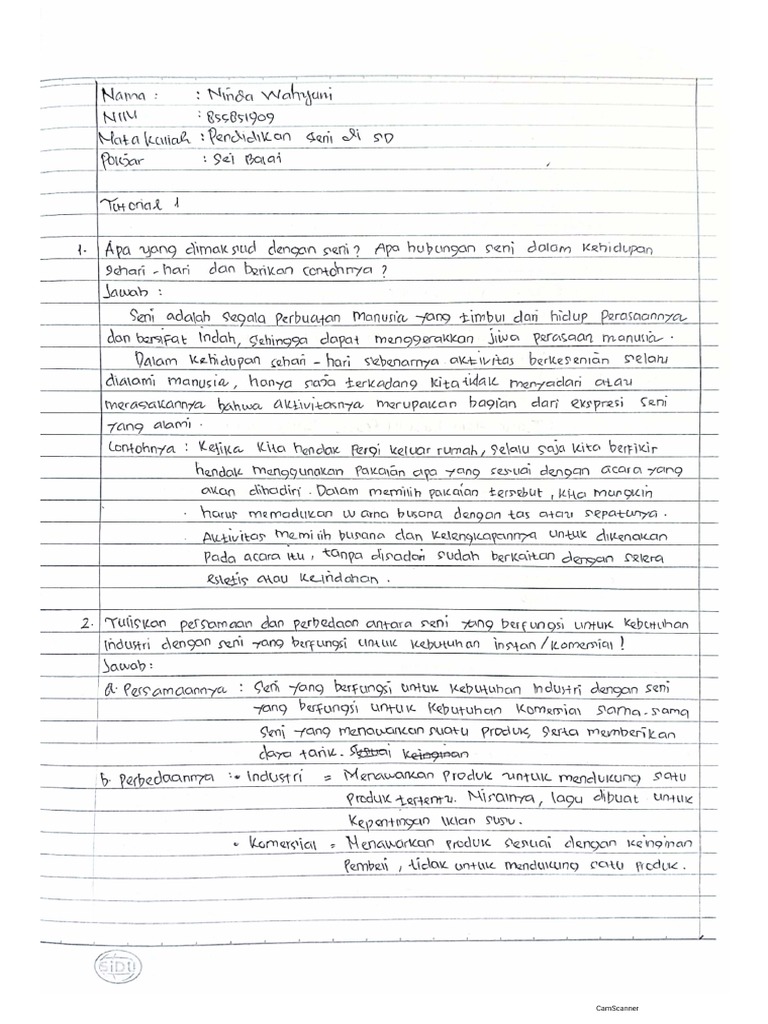 Nama : : Ninda Wahyuni
NIM : 855851909
Mata kuliah : Pendidikan Seni di SD
Pokjar : Sei Balai
Tutorial 1
1. Apa yang dimaksud dengan seni? Apa hubungan seni dalam kehidupan
sehari-hari dan berikan contohnya?
Jawab :
Seni adalah segala perbuatan manusia yang timbul dari hidup perasaannya
dan bersifat indah, sehingga dapat menggerakkan jiwa perasaan manusia.
Dalam kehidupan sehari-hari sebenarnya aktivitas berkesenian selalu
dialami manusia, hanya saja terkadang kita tidak menyadari atau
merasakannya bahwa aktivitasnya merupakan bagian dari ekspresi seni
yang alami.
Contohnya : Ketika kita hendak pergi keluar rumah, selalu saja kita berfikir
hendak menggunakan pakaian apa yang sesuai dengan acara yang
akan dihadiri. Dalam memilih pakaian tersebut, kita mungkin
harus memadukan warna busana dengan tas atau sepatunya.
Aktivitas memilih busana dan kelengkapannya untuk dikenakan
pada acara itu, tanpa disadari sudah berkaitan dengan selera
estetis atau keindahan.
2. Tuliskan persamaan dan perbedaan antara seni yang berfungsi untuk kebutuhan
industri dengan seni yang berfungsi untuk kebutuhan instan/komersial!
Jawab:
a. Persamaannya : Seni yang berfungsi untuk kebutuhan industri dengan seni
yang berfungsi untuk kebutuhan komersial sama-sama
seni yang menawarkan suatu produk, serta memberikan
daya tarik. Sesuai keinginan
b. Perbedaannya : • Industri = Menawarkan produk untuk mendukung satu
produk tertentu. Misalnya, lagu dibuat untuk
kepentingan iklan susu.
• Komersial = Menawarkan produk sesuai dengan keinginan
pembeli, tidak untuk mendukung satu produk.
SiDU
CamScanner